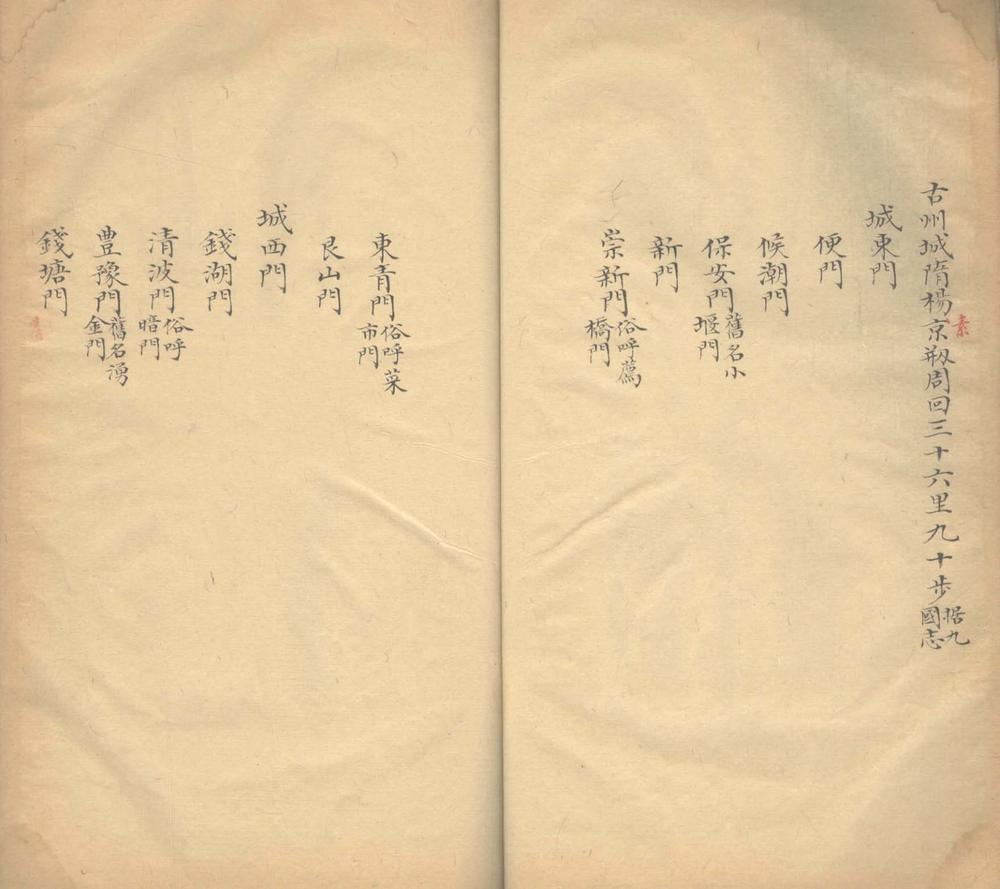 古州城隋楊京剏周回三十六里九十步据九國志
素
城東門
便門
候潮門
保安門舊名小堰門
新門
崇新門俗呼薦橋門
東青門俗呼菜市門
艮山門
城西門
錢湖門
清波門俗呼暗門
豊豫門舊名湧金門
錢塘門